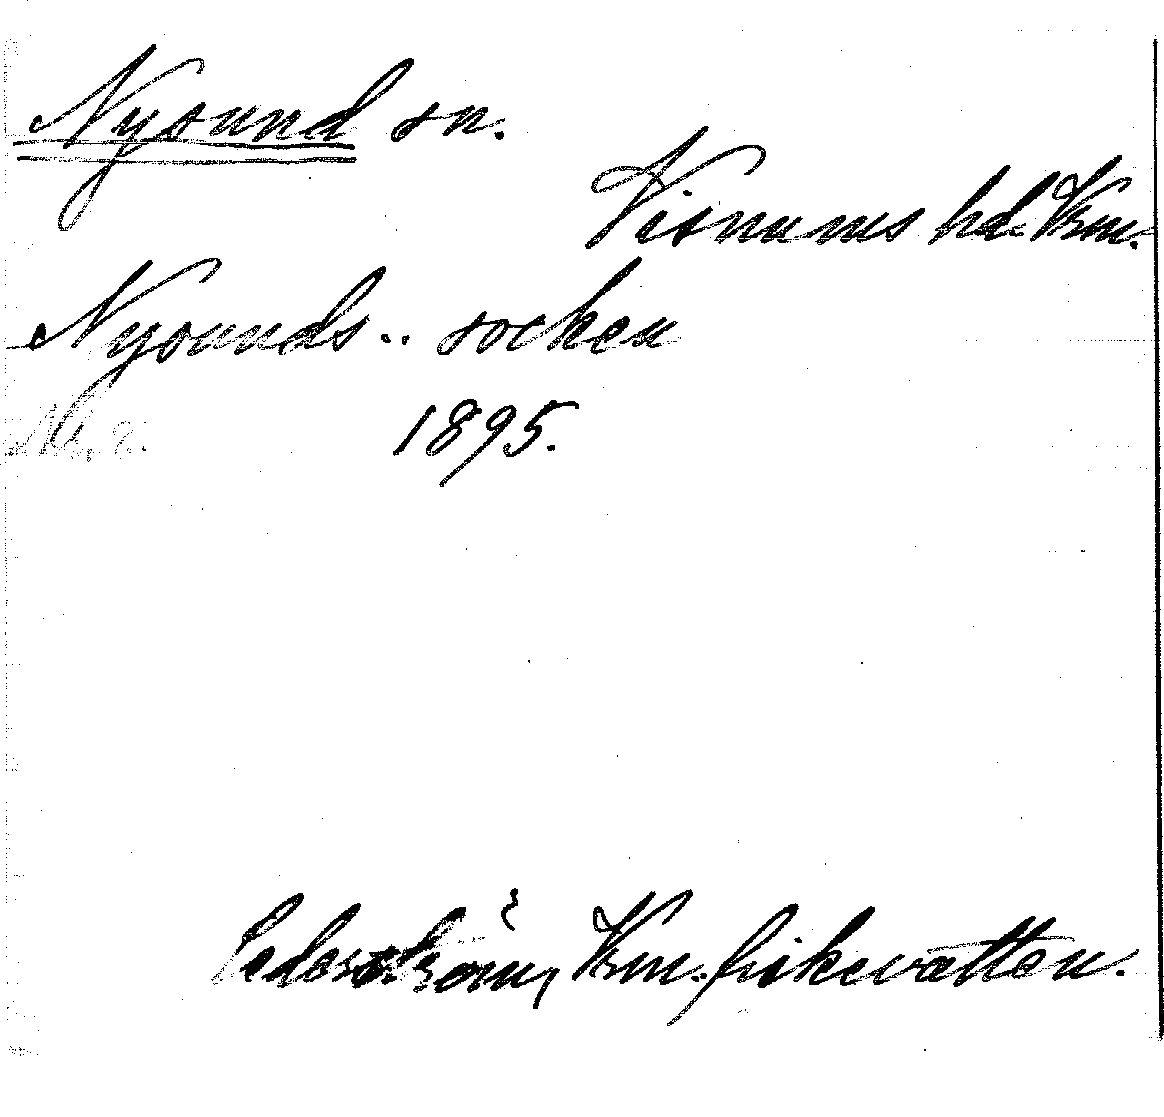 Nysund sn.
Visnums hd. Vrm.
Nysunds .. socken
1895.
Cederström, Vrm. fiskevatten.